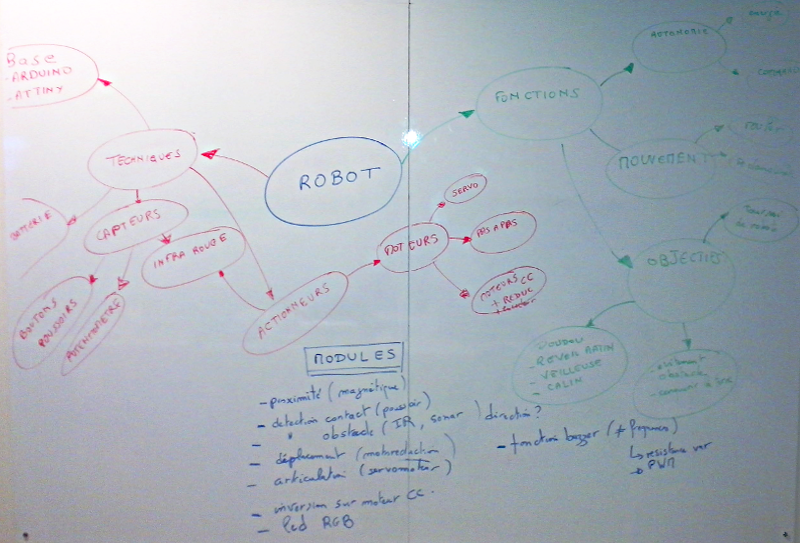 Base
- ARDUINO
- ATTINY
TECHNIQUES
BATTERIE
CAPTEURS
BOUTONS
POUSSOIRS
POTENTIOMETRE
INFRA ROUGE
ACTIONNEURS
ROBOT
MOTEURS
SERVO
PAS A PAS
MOTEURS CC
+ REDUC
FONCTIONS
AUTONOMIE
MOUVEMENT
OBJECTIFS
DOUDOU
- REVEIL MATIN
- VEILLEUSE
- CALIN
MODULES
- proximité (magnétique)
- detection contact (poussoir)
- " obstacle (IR, sonar) direction?
- déplacement (motoreduction)
- articulation (servomoteur)
- inversion sur moteur CC.
- led RGB
- fonction buzzer (≠ frequences)
↳ resistance var
→ PWM